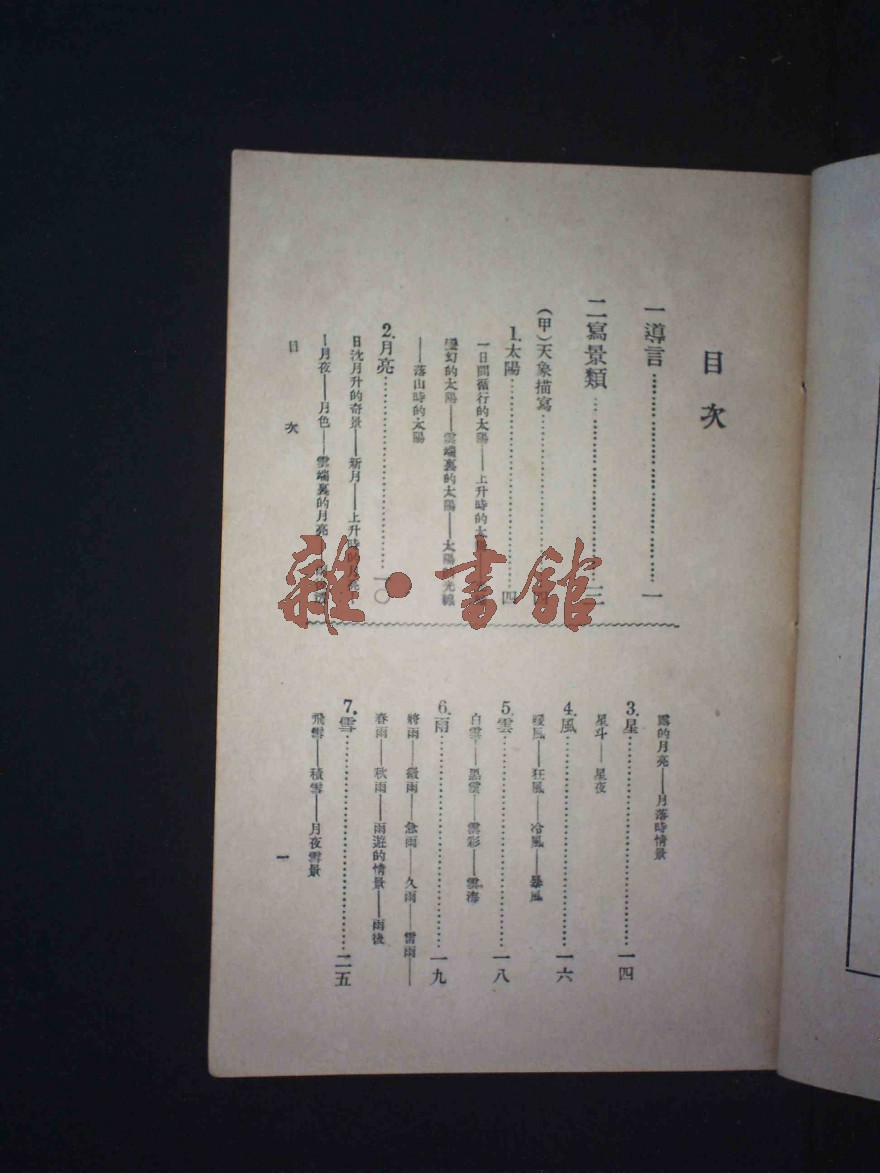 目次
一導言……………………一
二寫景類……………………三
(甲)天象描寫……………………四
1.太陽……………………四
一日間循行的太陽——上升時的太
變幻的太陽——雲端裏的太陽——太陽 光線
——落山時的太陽
2.月亮……………………一〇
日沈月升的奇景——新月——上升時的月亮—
—月夜——月色——雲端裏的月亮—
露的月亮——月落時情景
3.星……………………一四
星斗——星夜
4.風……………………一六
暖風——狂風——冷風——暴風
5.雲……………………一八
白雲——黑雲——雲彩——雲海
6.雨……………………一九
將雨——微雨——急雨——久雨——雷雨——
春雨——秋雨——雨遊的情景——雨後
7.雪……………………二五
飛雪——積雪——月夜雪景
目次
一
雜·書館